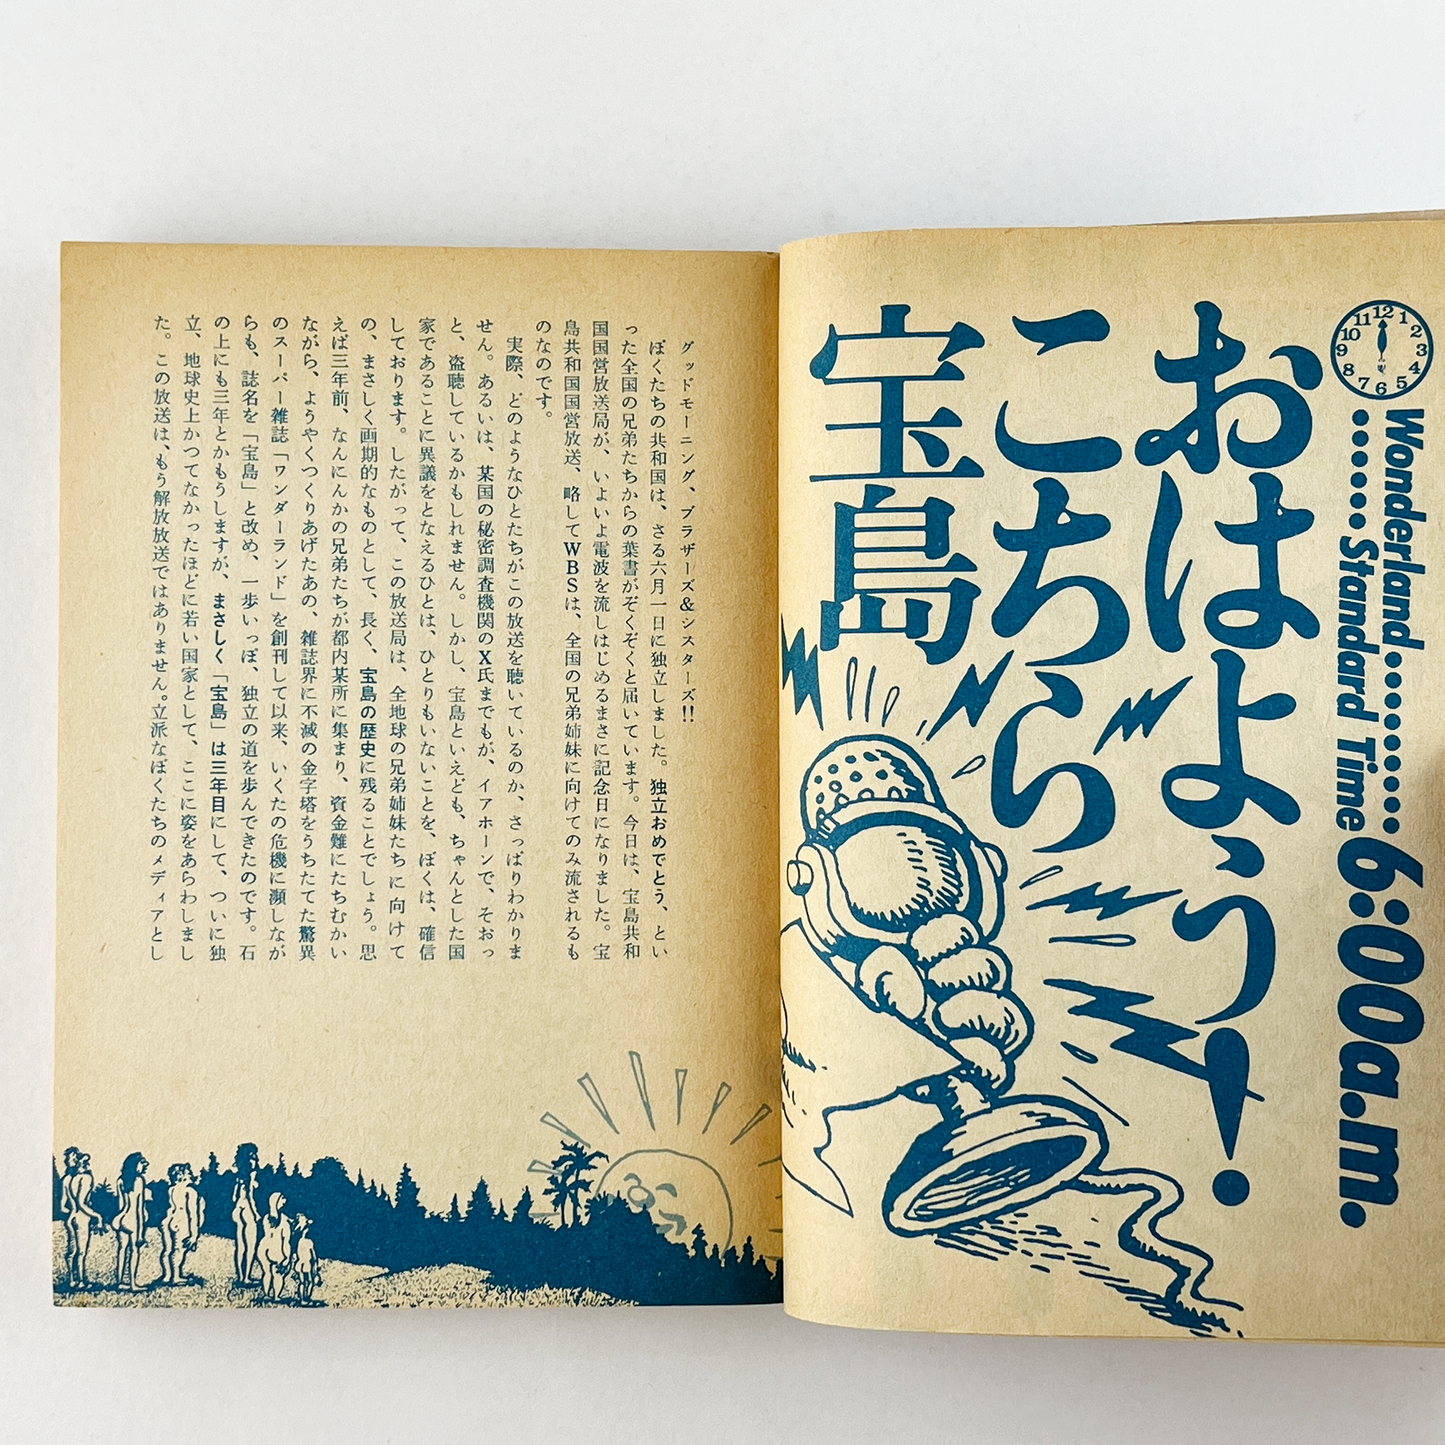 Wonderland
Standard Time 6:00a.m.
12
1
2
3
4
5
6
7
8
9
10
11
おはよう!
こちら
宝島
グッドモーニング、ブラザーズ&シスターズ!!
ぼくたちの共和国は、さる六月一日に独立しました。独立おめでとう、とい
った全国の兄弟たちからの葉書がぞくぞくと届いています。今日は、宝島共和
国国営放送局が、いよいよ電波を流しはじめるまさに記念日になりました。宝
島共和国国営放送、略してWBSは、全国の兄弟姉妹に向けてのみ流されるも
のなのです。
実際、どのようなひとたちがこの放送を聴いているのか、さっぱりわかりま
せん。あるいは、某国の秘密調査機関のX氏までもが、イアホーンで、そおっ
と、盗聴しているかもしれません。しかし、宝島といえども、ちゃんとした国
家であることに異議をとなえるひとは、ひとりもいないことを、ぼくは、確信
しております。したがって、この放送局は、全地球の兄弟姉妹たちに向けて
の、まさしく画期的なものとして、長く、宝島の歴史に残ることでしょう。思
えば三年前、なんにんかの兄弟たちが都内某所に集まり、資金難にたちむかい
ながら、ようやくつくりあげたあの、雑誌界に不滅の金字塔をうちたてた驚異
のスーパー雑誌「ワンダーランド」を創刊して以来、いくたの危機に瀕しなが
らも、誌名を「宝島」と改め、一歩いっぽ、独立の道を歩んできたのです。石
の上にも三年とかもうしますが、まさしく「宝島」は三年目にして、ついに独
立、地球史上かつてなかったほどに若い国家として、ここに姿をあらわしまし
た。この放送は、もう解放放送ではありません。立派なぼくたちのメディアとし